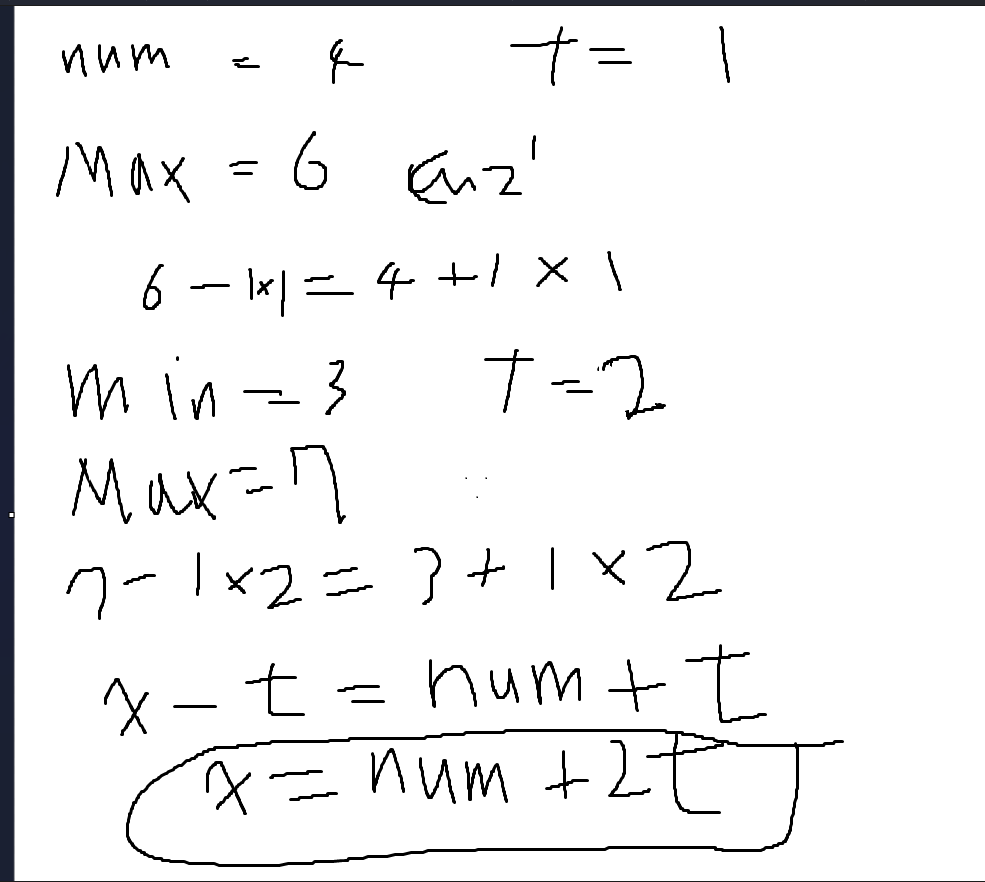 num = 4 t = 1
Max = 6
6 - 1x1 = 4 + 1 x 1
min = 3 T = 2
Max = 7
7 - 1 x 2 = 3 + 1 x 2
x - t = num + t
x = num + 2t